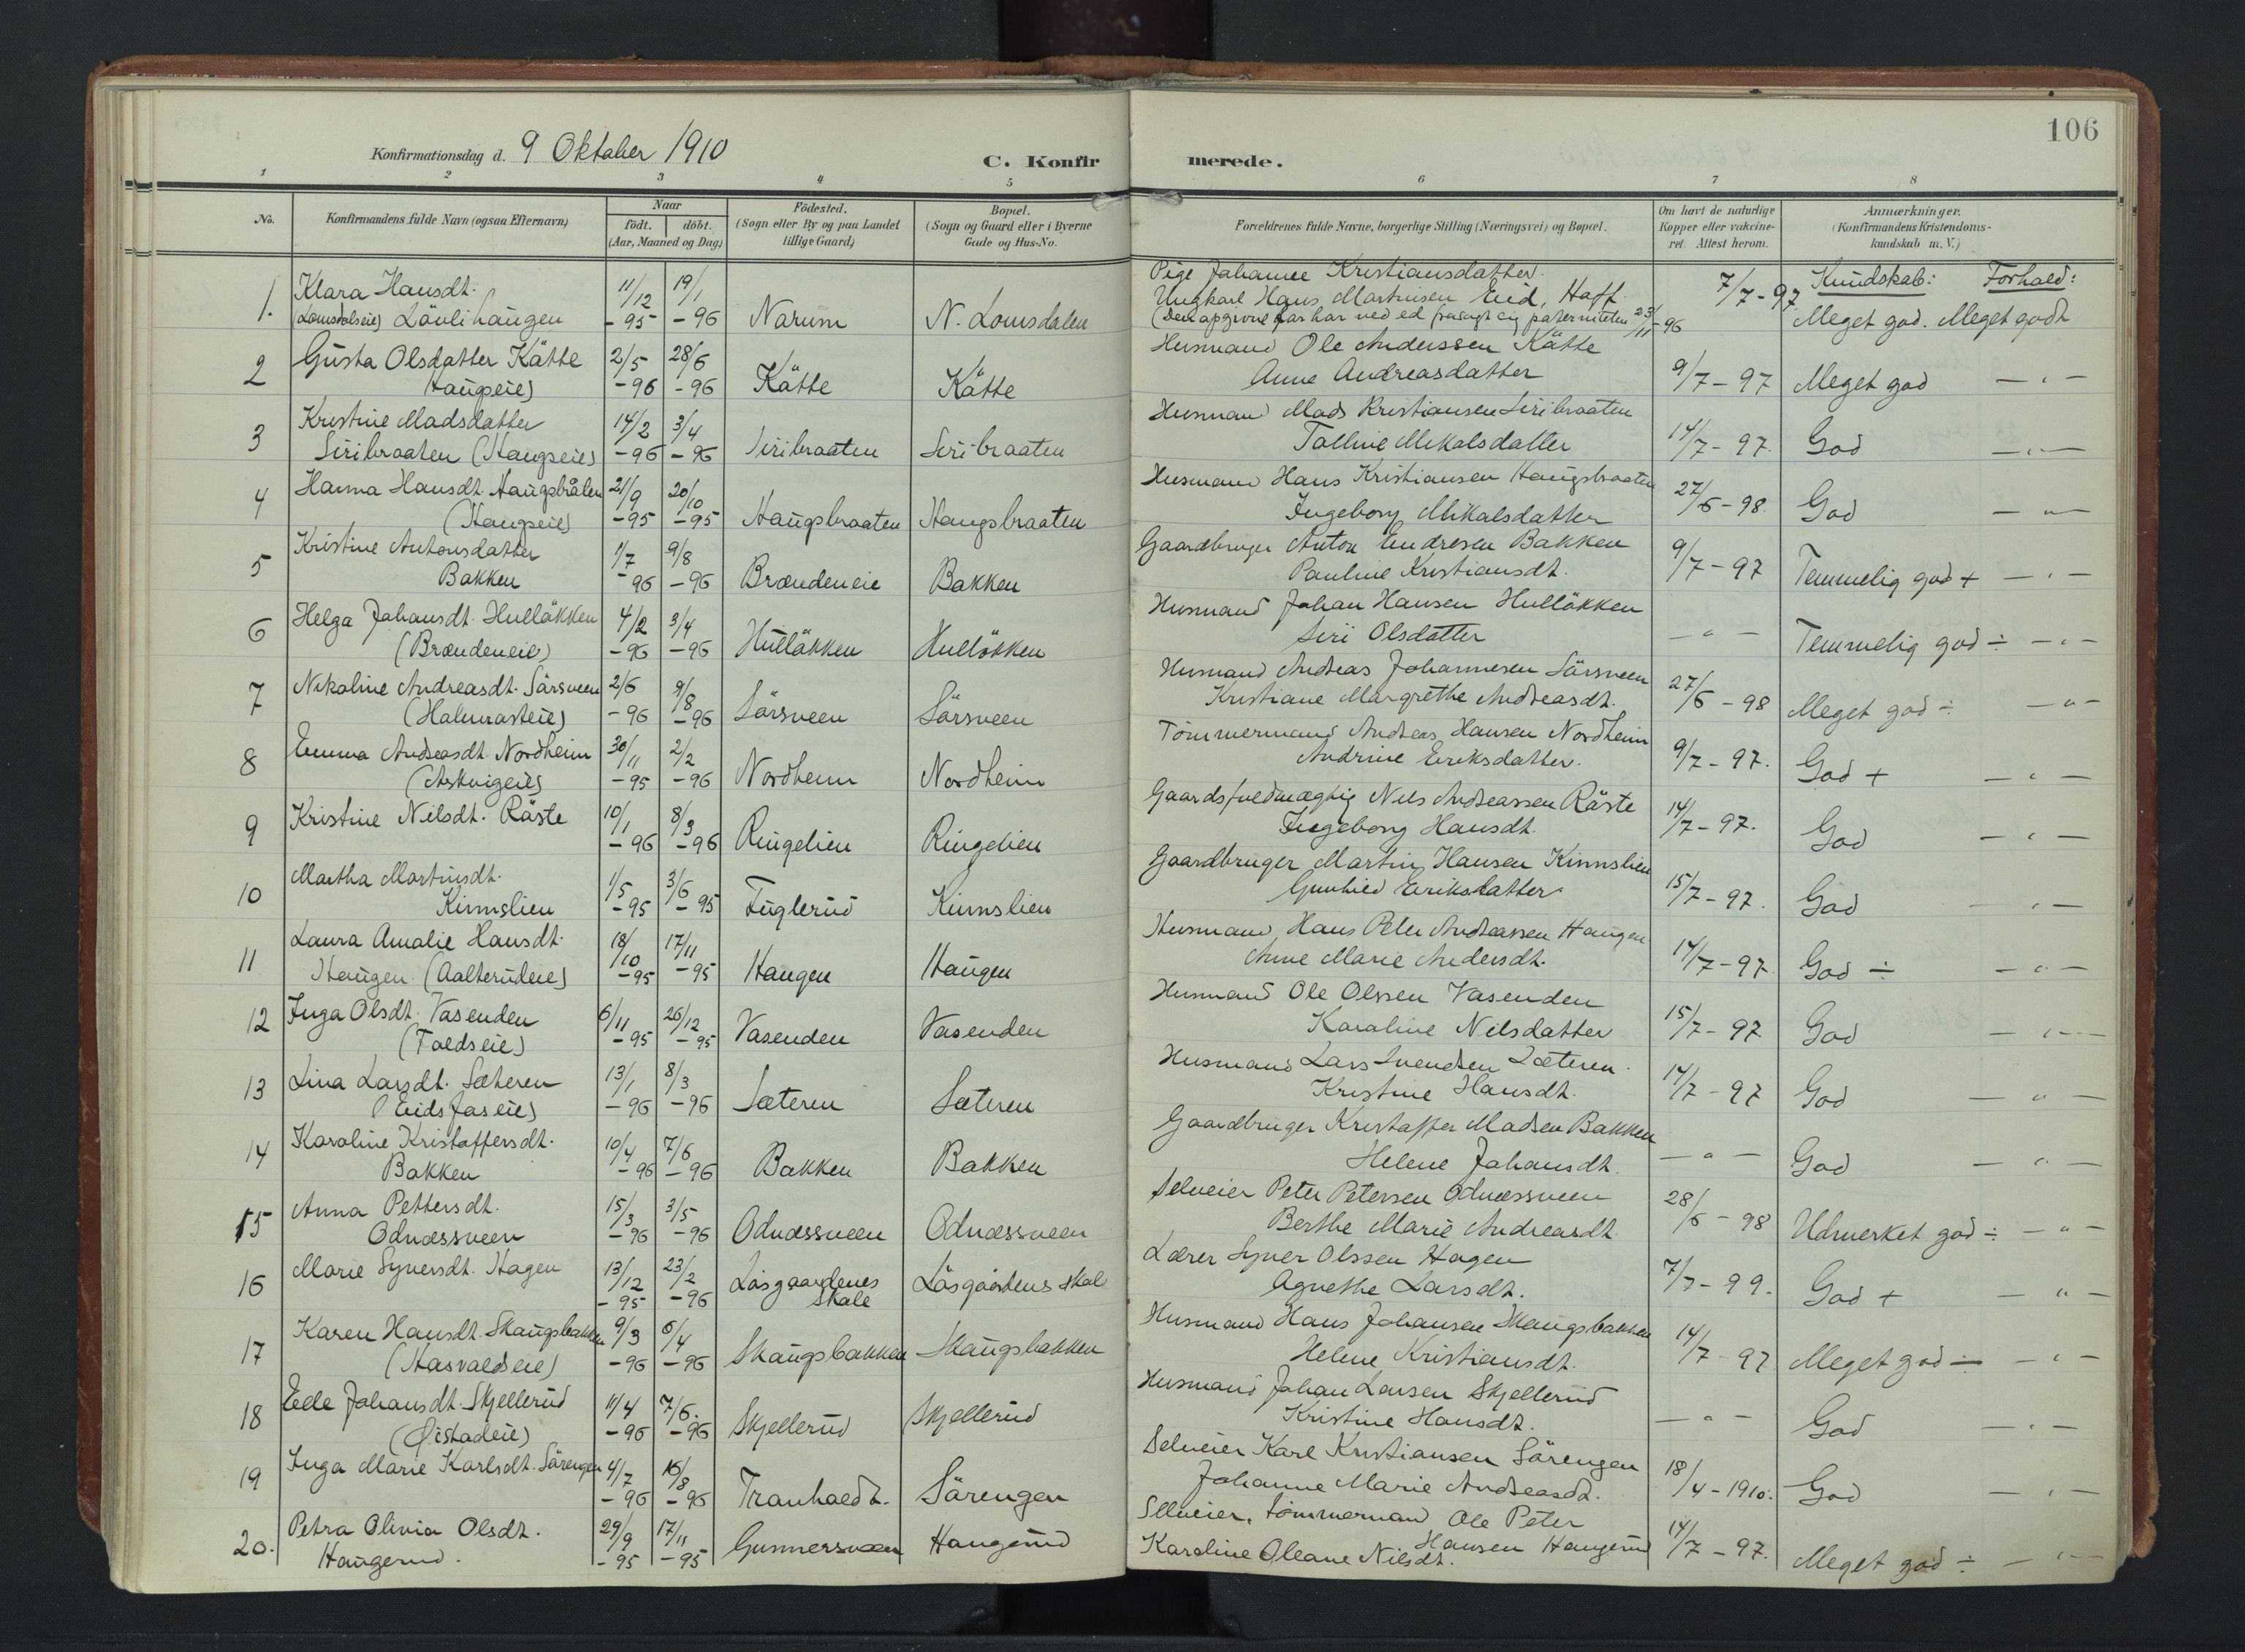 106
Konfirmationsdag d. 9 Oktober 1910
C. Konfirmerede.
1 2 3 4 5 6 7 8
No.
Konfirmandens fulde Navn (ogsaa Efternavn)
Naar
födt. döbt.
(Aar, Maaned og Dag)
Födested.
(Sogn eller By og paa Landet
tillige Gaard)
Bopæl.
(Sogn og Gaard eller i Byerne
Gade og Hus-No.
Forældrenes fulde Navne, borgerlige Stilling (Næringsvei) og Bopæl.
Om havt de naturlige
Kopper eller vakcine-
ret. Attest herom.
Anmærkninger.
(Konfirmandens Kristendoms-
kundskab m. V.)
Kundskab: Forhold:
1. Klara Hansdt. 11/12 19/1 Pige Johanne Kristiansdatter. 7/7-97
(Lomsdalseie) Lövlihaugen -95 -96 Narum N. Lomsdalen Ungkarl Hans Martinsen Eid, Hoff. Meget god. Meget godt
(Den opgivne far har ved ed fralagt sig paterniteten 23/11-96
2 Gusta Olsdatter Kätte 2/5 28/6 Husmand Ole Anderssen Kätte
(Haugseie) -96 -96 Kätte Kätte Anne Andreasdatter 9/7-97 Meget god — " —
3 Kristine Madsdatter 14/2 3/4 Husmand Mads Kristiansen Siribraaten
Siribraaten (Haugseie) -96 -96 Siribraaten Siribraaten Talline Mikalsdatter 14/7-97. God — " —
4 Hanna Hansdt. Haugsbråten 21/9 20/10 Husmand Hans Kristiansen Haugsbraaten
(Haugseie) -95 -95 Haugsbraaten Haugsbraaten Ingeborg Mikalsdatter 27/6-98. God — " —
5 Kristine Antonsdatter 1/7 9/8 Gaardbruger Anton Endresen Bakken
Bakken -96 -96 Brændeneie Bakken Pauline Kristiansdt. 9/7-97 Temmelig god + — " —
6 Helga Johansdt. Hullökken 4/2 3/4 Husmand Johan Hansen Hullökken
(Brændeneie) -96 -96 Hullökken Hullökken Siri Olsdatter — " — Temmelig god ÷ — " —
7 Nikoline Andreasdt. Sörsveen 2/6 9/8 Husmand Andreas Johannesen Sörsveen
(Halmrasteie) -96 -96 Sörsveen Sörsveen Kristiane Margrethe Andreasdt. 27/6-98 Meget god ÷ — " —
8 Emma Andreasdt. Nordheim 30/11 2/2 Tömmermand Andreas Hansen Nordheim
(Askvigeie) -95 -96 Nordheim Nordheim Andrine Eriksdatter. 9/7-97. God + — " —
9 Kristine Nilsdt. Röste 10/1 8/3 Gaardsfuldmægtig Nils Andreassen Röste
-96 -96 Ringelien Ringelien Ingeborg Hansdt. 14/7-97. God — " —
10 Martha Martinsdt. 1/5 3/6 Gaardbruger Martin Hansen Kinnslien
Kinnslien -95 -95 Fuglerud Kinnslien Gunhild Eriksdatter. 15/7-97. God — " —
11 Laura Amalie Hansdt. 18/10 17/11 Husmand Hans Peter Andreassen Haugen
Haugen (Aalterudeie) -95 -95 Haugen Haugen Anne Marie Andersdt. 14/7-97. God ÷ — " —
12 Inga Olsdt. Vasenden 6/11 26/12 Husmand Ole Olssen Vasenden
(Foldseie) -95 -95 Vasenden Vasenden Karoline Nilsdatter 15/7-97 God — " —
13 Lina Larsdt. Sæteren 13/1 8/3 Husmand Lars Svendsen Sæteren.
(Eidsfoseie) -96 -96 Sæteren Sæteren Kristine Hansdt. 14/7-97 God — " —
14 Karoline Kristoffersdt. 10/4 7/6 Gaardbruger Kristoffer Madsen Bakken
Bakken -96 -96 Bakken Bakken Helene Johansdt. — " — God — " —
15 Anna Pettersdt. 15/3 3/5 Selveier Peter Petersen Odnæssveen
Odnæssveen -96 -96 Odnæssveen Odnæssveen Berthe Marie Andreasdt. 28/6-98 Udmerket god ÷ — " —
16 Marie Syversdt. Hagen 13/12 23/2 Lærer Syver Olssen Hagen
-95 -96 Lösgaardenes skole Lösgårdens skol Agnethe Larsdt. 7/7-99. God + — " —
17 Karen Hansdt. Skaugsbakken 9/3 6/4 Husmand Hans Johansen Skaugsbakken
(Hasvoldseie) -96 -96 Skaugsbakken Skaugsbakken Helene Kristiansdt. 14/7 97 Meget god ÷ — " —
18 Elle Johansdt. Skjellerud 11/4 7/6. Husmand Johan Larsen Skjellerud
-96 -96 Skjellerud Skjellerud Kristine Hansdt. — " — God — " —
19 Inga Marie Karlsdt. Sörengen 4/7 16/8 Selveier Karl Kristiansen Sörengen
-96 -96 Tranholdt. Sörengen Johanne Marie Andreasdt. 18/4-1910. God — " —
20. Petra Olivia Olsdt. 29/9 17/11 Selveier, tömmermand Ole Peter
Haugerud. -95 -95 Gunnersveen Haugerud Hansen Haugerud 14/7-97. Meget god ÷ — " —
Karoline Oleane Nilsdt.